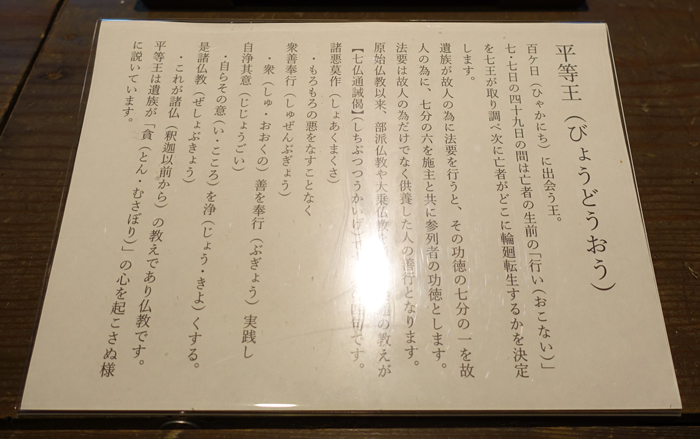 平等王（びょうどうおう）
百ケ日（ひゃかにち）に出会う王。
七・七日の四十九日の間は亡者の生前の「行い（おこない）」
を七王が取り調べ次に亡者がどこに輪廻転生するかを決定
します。
遺族が故人の為に法要を行うと、その功徳の七分の一を故
人の為に、七分の六を施主と共に参列者の功徳とします。
法要は故人の為だけでなく供養した人の善行となります。
原始仏教以来、部派仏教や大乗仏教 の教えが
【七仏通誡偈】（しちぶつつうかいげ） 四句です。
諸悪莫作（しょあくまくさ）
・もろもろの悪をなすことなく
衆善奉行（しゅぜんぶぎょう）
・衆（しゅ・おおくの）善を奉行（ぶぎょう）実践し
自浄其意（じじょうごい）
・自らその意（い・こころ）を浄（じょう・きよ）くする。
是諸仏教（ぜしょぶきょう）
・これが諸仏（釈迦以前から）の教えであり仏教です。
平等王は遺族が「貪（とん・むさぼり）」の心を起こさぬ様
に説いています。